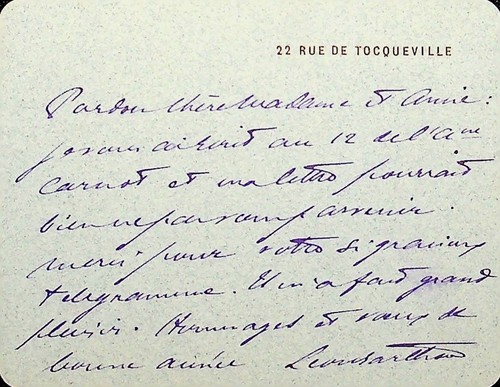 22 RUE DE TOCQUEVILLE
Pardon chère Madame et Amie :
je vous ai écrit au 12 de l'Ave
Carnot et ma lettre pourrait
bien ne pas vous parvenir.
merci pour votre si gracieux
télégramme. Il m'a fait grand
plaisir. Hommages et vœux de
bonne année